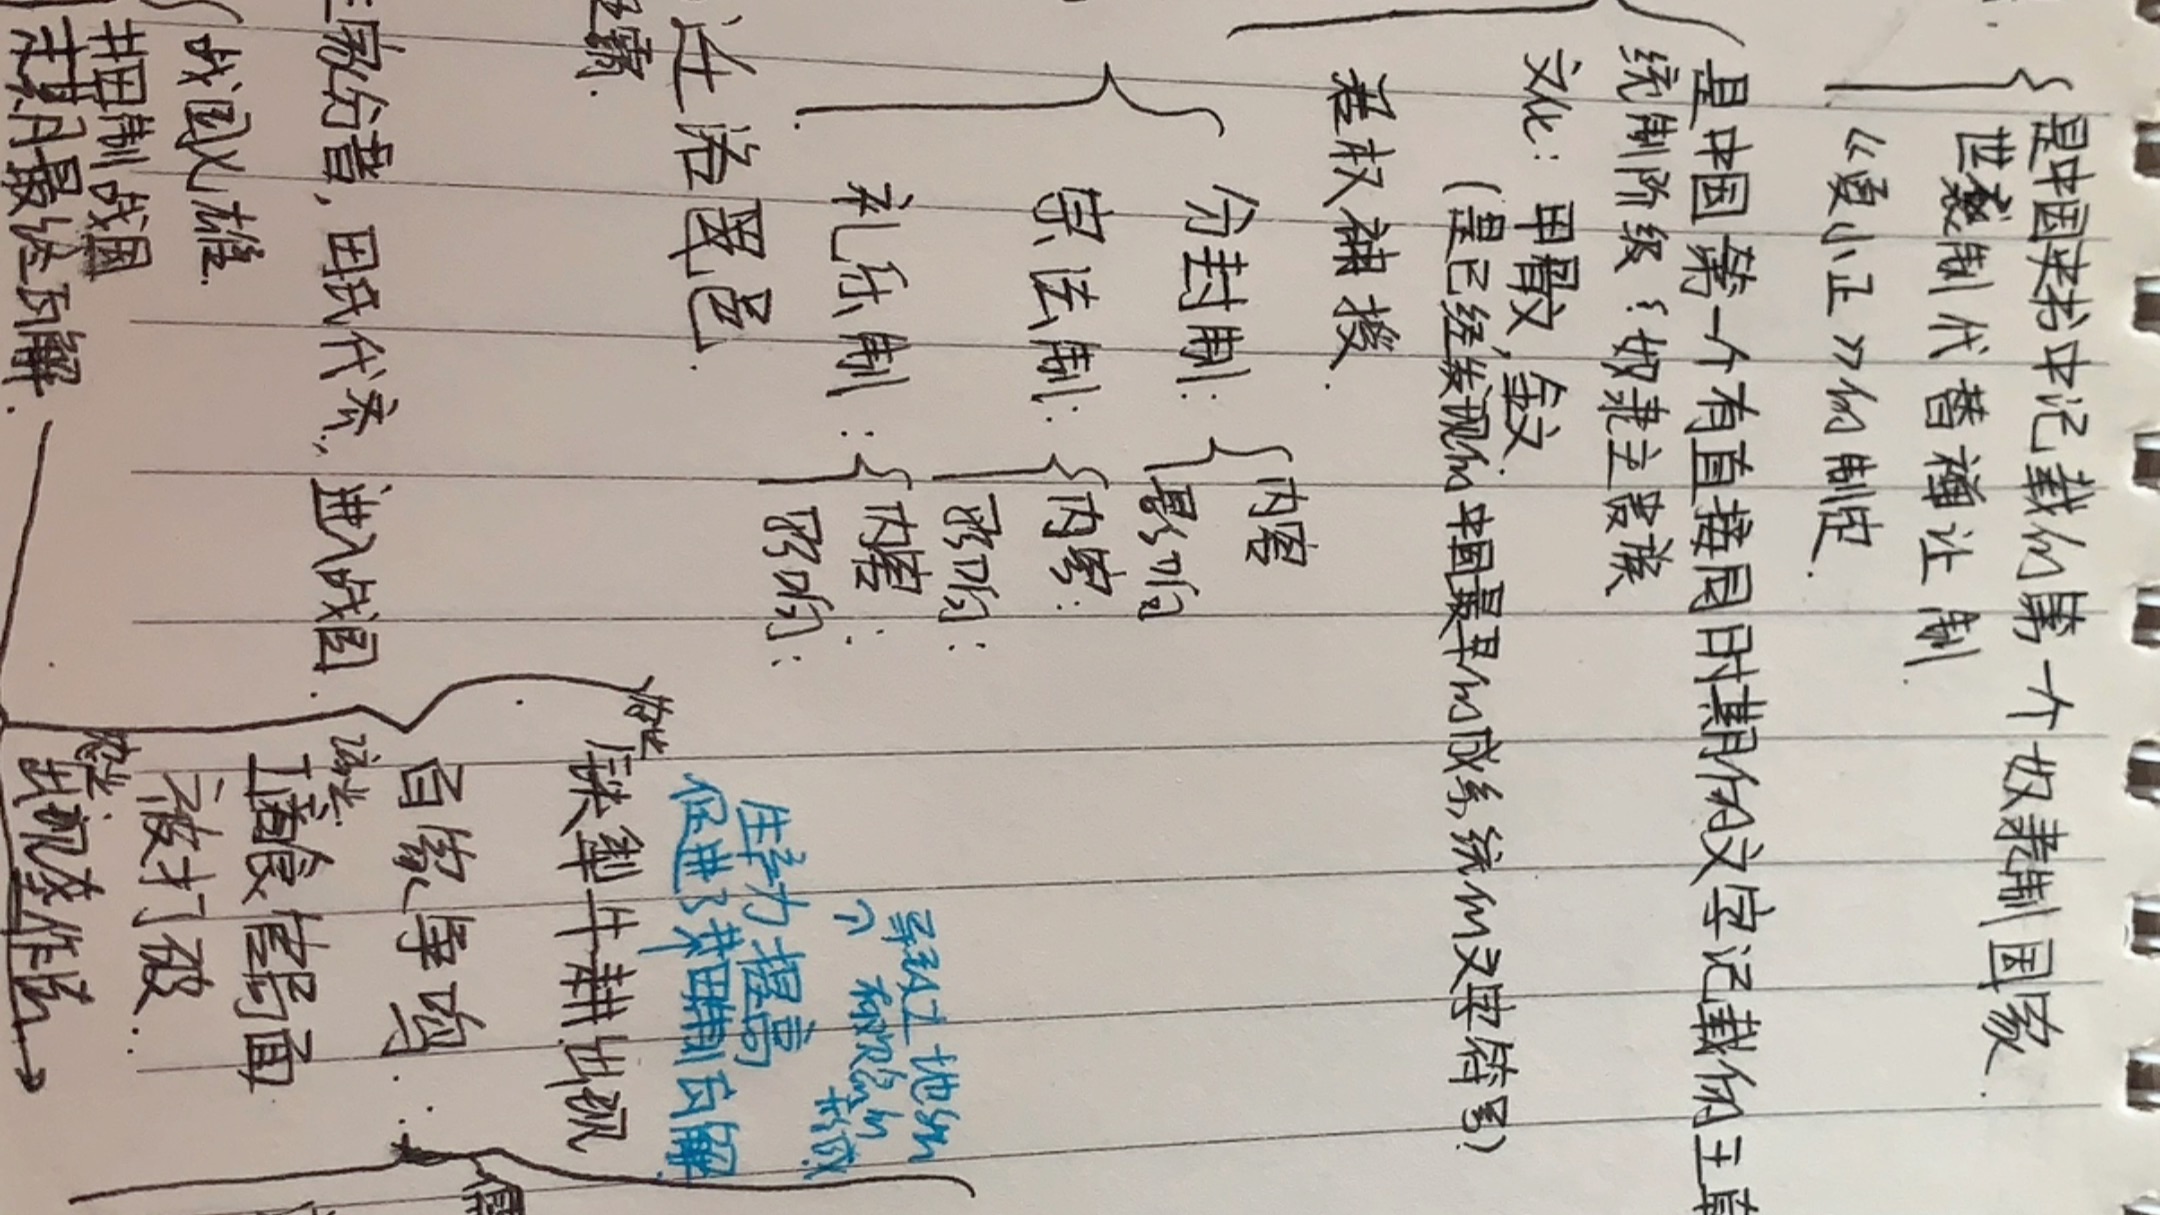 是中国史书中记载的第一个奴隶制国家.
世袭制代替禅让制.
《夏小正》的制定.
是中国第一个有直接同时期的文字记载的王
统制阶级:奴隶主贵族
文化:甲骨文,金文
(是已经发现的中国最早的成系统的文字符号)
君权神授.
分封制:
内容
影响
宗法制:
内容:
影响:
礼乐制:
内容
影响:
三家分晋,田氏代齐,进入战国.
战国七雄.
井田制战国
末期最终瓦解.
铁犁牛耕出现
生产力提高
促进了井田制瓦解
导致土地
形成
百家争鸣
工商食官局面
被打破
出现